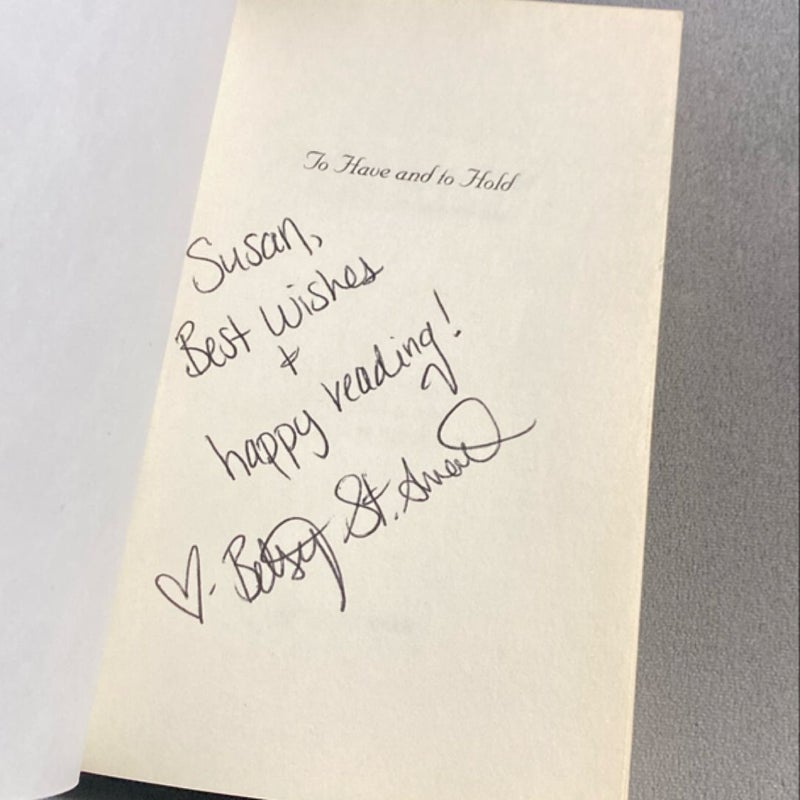 To Have and to Hold
Susan,
Best Wishes
+
happy reading!
♡. Betsy St. Amant